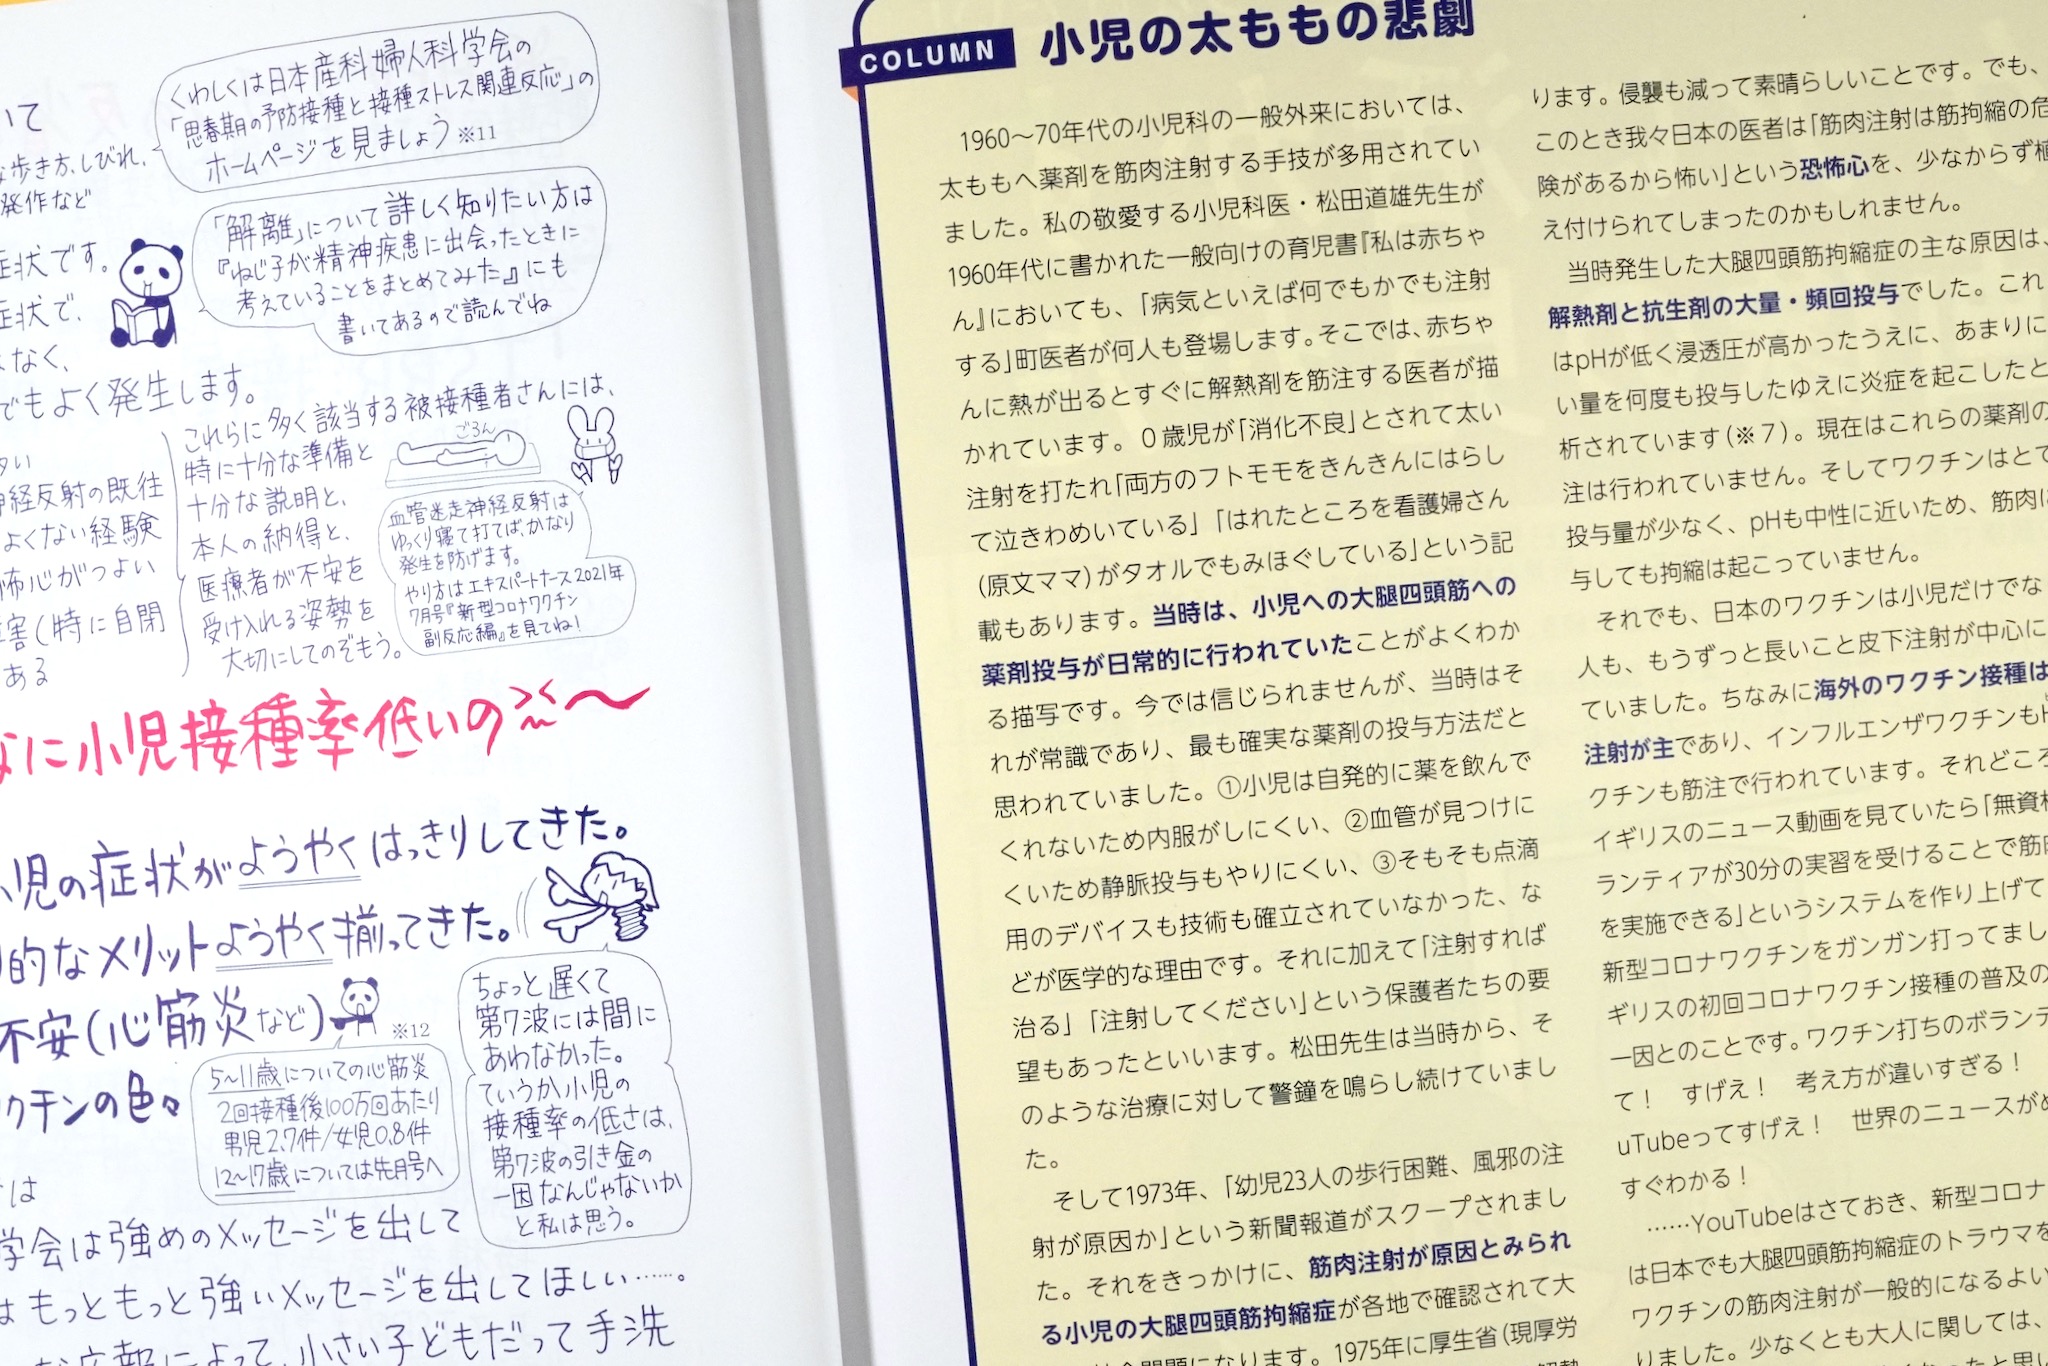 いて
な歩き方、しびれ、
発作など
症状です。
症状で、
なく、
でもよく発生します。
くわしくは日本産科婦人科学会の
「思春期の予防接種と接種ストレス関連反応」の
ホームページを見ましょう ※11
「解離」について詳しく知りたい方は
『ねじ子が精神疾患に出会ったときに
考えていることをまとめてみた』にも
書いてあるので読んでね
神経反射の既往
よくない経験
怖心がつよい
害(特に自閉
ある
これらに多く該当する被接種者さんには、
特に十分な準備と
十分な説明と、
本人の納得と、
医療者が不安を
受け入れる姿勢を
大切にしてのぞもう。
ごろん
血管迷走神経反射は
ゆっくり寝て打てば、かなり
発生を防げます。
やり方はエキスパートナース2021年
7月号『新型コロナワクチン
副反応編』を見てね!
なに小児接種率低いの〜
小児の症状がようやくはっきりしてきた。
的なメリットようやく揃ってきた。
不安(心筋炎など)
※12
ワクチンの色々
5〜11歳についての心筋炎
2回接種後100万回あたり
男児2.7件/女児0.8件
12〜17歳については先月号へ
ちょっと遅くて
第7波には間に
あわなかった。
ていうか小児の
接種率の低さは、
第7波の引き金の
一因なんじゃないか
と私は思う。
は
学会は強めのメッセージを出して
はもっともっと強いメッセージを出してほしい……。
によって、小さい子どもだって手洗
COLUMN 小児の太ももの悲劇
1960〜70年代の小児科の一般外来においては、
太ももへ薬剤を筋肉注射する手技が多用されてい
ました。私の敬愛する小児科医・松田道雄先生が
1960年代に書かれた一般向けの育児書『私は赤ちゃ
ん』においても、「病気といえば何でもかでも注射
する」町医者が何人も登場します。そこでは、赤ちゃ
んに熱が出るとすぐに解熱剤を筋注する医者が描
かれています。0歳児が「消化不良」とされて太い
注射を打たれ「両方のフトモモをきんきんにはらし
て泣きわめいている」「はれたところを看護婦さん
(原文ママ)がタオルでもみほぐしている」という記
載もあります。当時は、小児への大腿四頭筋への
薬剤投与が日常的に行われていたことがよくわか
る描写です。今では信じられませんが、当時はそ
れが常識であり、最も確実な薬剤の投与方法だと
思われていました。①小児は自発的に薬を飲んで
くれないため内服がしにくい、②血管が見つけに
くいため静脈投与もやりにくい、③そもそも点滴
用のデバイスも技術も確立されていなかった、な
どが医学的な理由です。それに加えて「注射すれば
治る」「注射してください」という保護者たちの要
望もあったといいます。松田先生は当時から、そ
のような治療に対して警鐘を鳴らし続けていまし
た。
そして1973年、「幼児23人の歩行困難、風邪の注
射が原因か」という新聞報道がスクープされまし
た。それをきっかけに、筋肉注射が原因とみられ
る小児の大腿四頭筋拘縮症が各地で確認されて大
問題になります。1975年に厚生省(現厚労
ります。侵襲も減って素晴らしいことです。でも、
このとき我々日本の医者は「筋肉注射は筋拘縮の危
険があるから怖い」という恐怖心を、少なからず植
え付けられてしまったのかもしれません。
当時発生した大腿四頭筋拘縮症の主な原因は、
解熱剤と抗生剤の大量・頻回投与でした。これ
はpHが低く浸透圧が高かったうえに、あまりに
い量を何度も投与したゆえに炎症を起こしたと
析されています(※7)。現在はこれらの薬剤の
注は行われていません。そしてワクチンはとて
投与量が少なく、pHも中性に近いため、筋肉に
与しても拘縮は起こっていません。
それでも、日本のワクチンは小児だけでな
人も、もうずっと長いこと皮下注射が中心に
ていました。ちなみに海外のワクチン接種は
注射が主であり、インフルエンザワクチンも
クチンも筋注で行われています。それどころ
イギリスのニュース動画を見ていたら「無資格
ランティアが30分の実習を受けることで筋肉
を実施できる」というシステムを作り上げて
新型コロナワクチンをガンガン打ってまし
ギリスの初回コロナワクチン接種の普及の
一因とのことです。ワクチン打ちのボランテ
て! すげえ! 考え方が違いすぎる!
uTubeってすげえ! 世界のニュースが
すぐわかる!
……YouTubeはさておき、新型コロナ
は日本でも大腿四頭筋拘縮症のトラウマを
ワクチンの筋肉注射が一般的になるよい
りました。少なくとも大人に関しては、